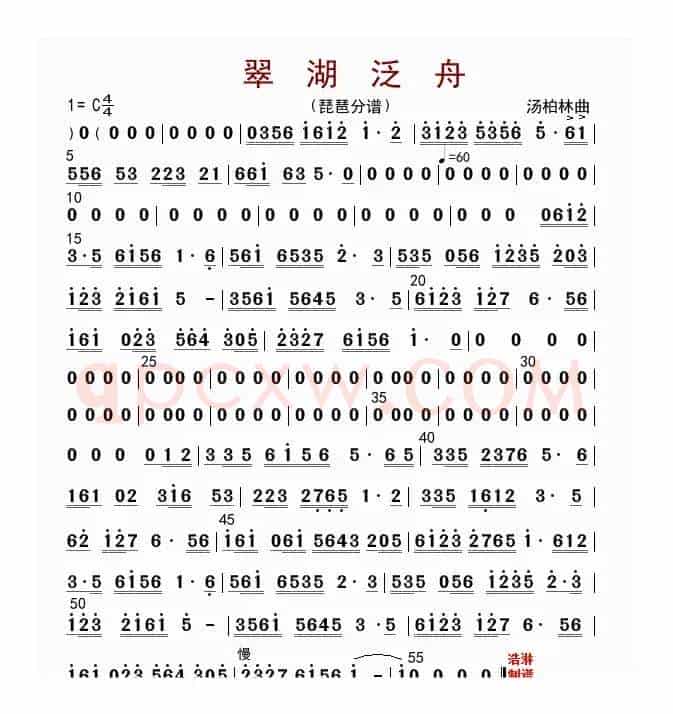 翠湖泛舟
1=C 4/4 （琵琶分谱） 汤柏林曲
)0( 0 0 0 | 0 0 0 0 | 0356 1612 1·2 | 3123 5356 5·61 |
♩=60
5
556 53 223 21 | 661 63 5·0 | 0 0 0 0 | 0 0 0 0 | 0 0 0 0 |
10
0 0 0 0 | 0 0 0 0 | 0 0 0 0 | 0 0 0 0 | 0 0 0 0612 |
15
3·5 6156 1·6 | 561 6535 2·3 | 535 056 1235 203 |
20
123 2161 5 - | 3561 5645 3·5 | 6123 127 6·56 |
161 023 564 305 | 2327 6156 1·0 | 0 0 0 0 |
25 30
0 0 0 0 | 0 0 0 0 | 0 0 0 0 | 0 0 0 0 | 0 0 0 0 | 0 0 0 0 | 0 0 0 0 |
35
0 0 0 0 | 0 0 0 0 | 0 0 0 0 | 0 0 0 0 | 0 0 0 0 | 0 0 0 0 | 0 0 0 0 |
qpcxw.COM
40
0 0 0 012 | 335 6156 5·65 | 335 2376 5·6 |
161 02 316 53 | 223 2765 1·2 | 335 1612 3·5 |
45
62 127 6·56 | 161 061 5643 205 | 6123 2765 1·612 |
3·5 6156 1·6 | 561 6535 3·3 | 535 056 1235 2·3 |
50
123 2161 5 - | 3561 5645 3·5 | 6123 127 6·56 |
慢 55 浩淋
161 023 564 305 | 2327 6156 1 - | 1 0 0 0 0 | 制谱